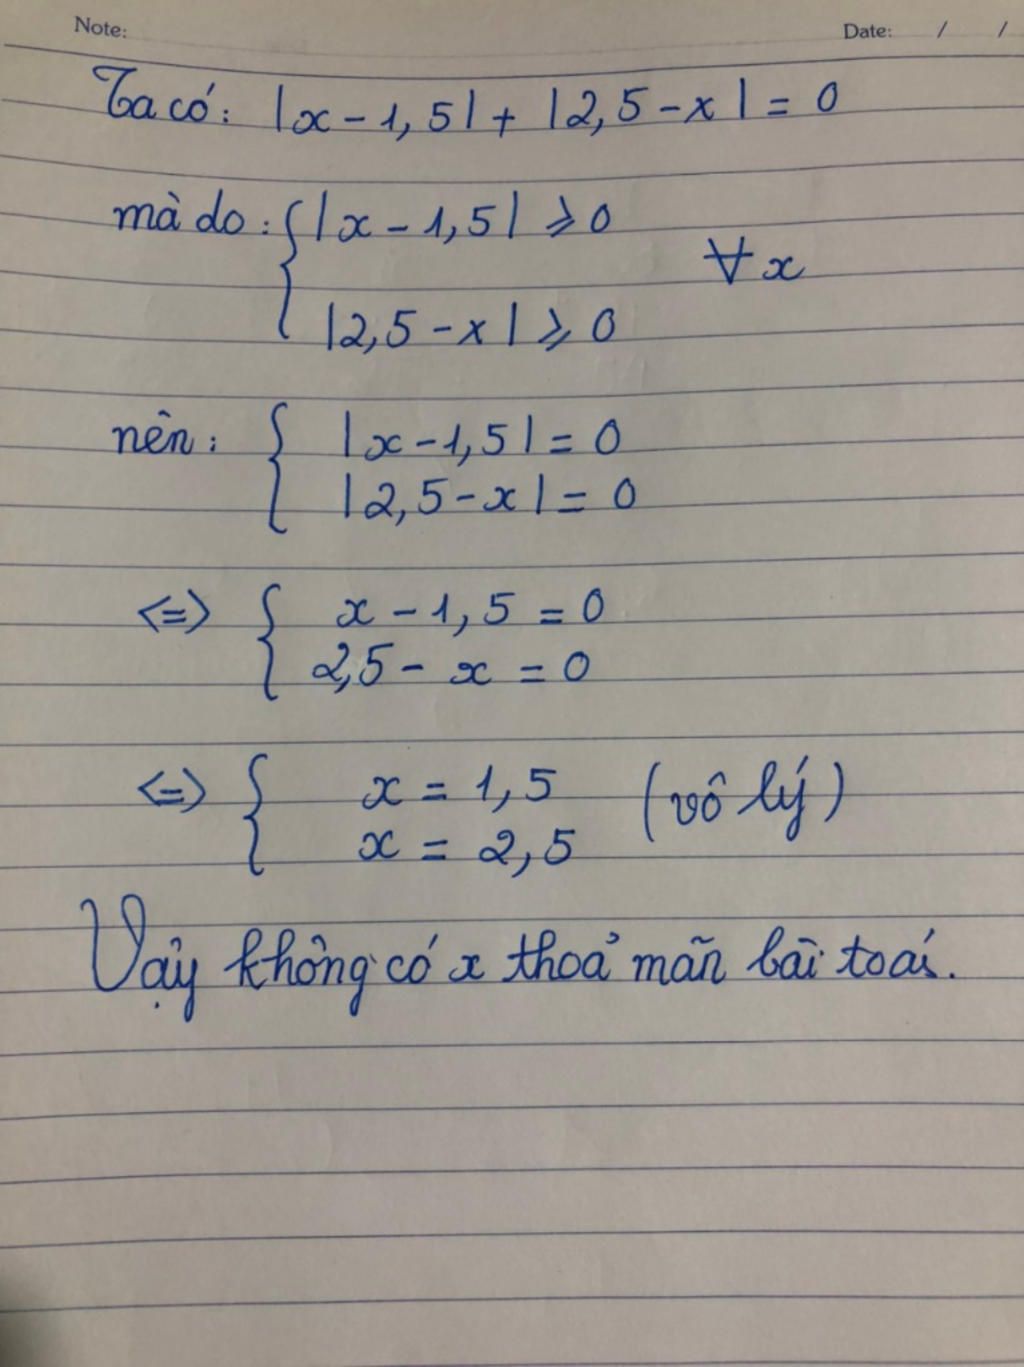 Note: Date: / /
Ta có: |x - 1,5| + |2,5 - x| = 0
mà do: { |x - 1,5| ⩾ 0
∀ x
|2,5 - x| ⩾ 0
nên: { |x - 1,5| = 0
|2,5 - x| = 0
<=> { x - 1,5 = 0
2,5 - x = 0
<=> { x = 1,5 (vô lý)
x = 2,5
Vậy không có x thoả mãn bài toán.